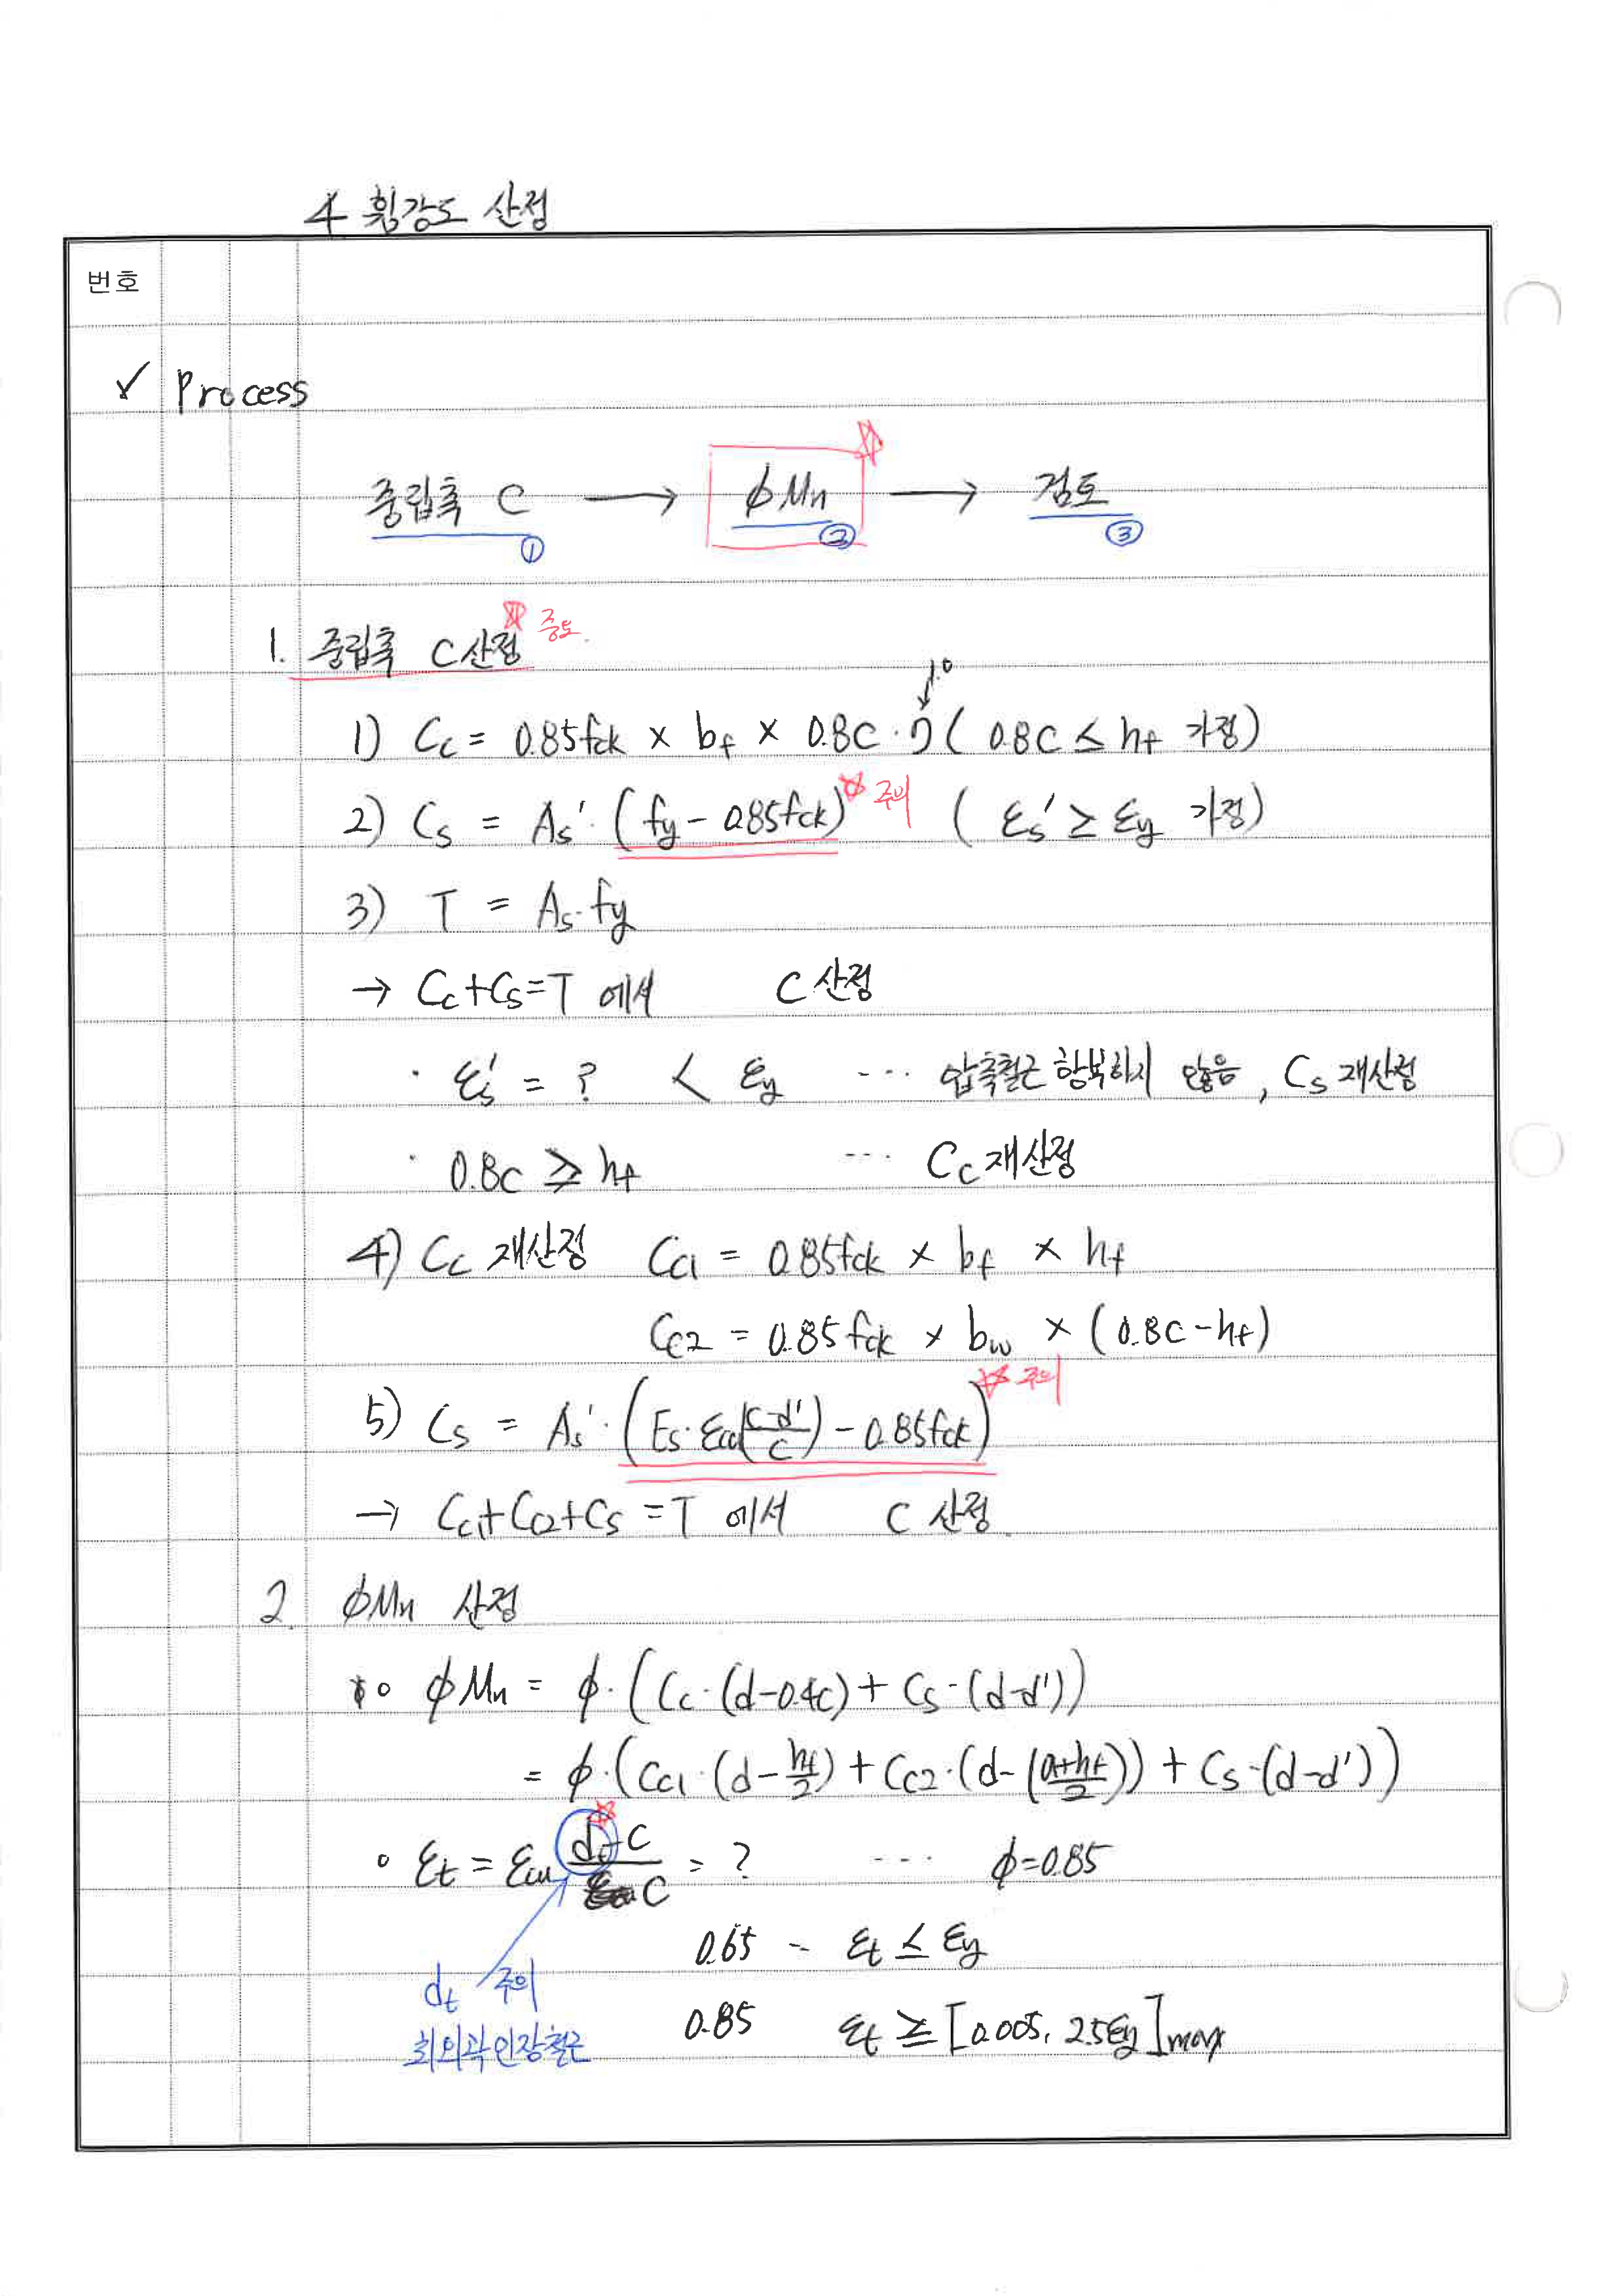 4 휨강도 산정
번호
✓ Process
중립축 C → φMn → 검토
① ② ③
1. 중립축 C산정 중요.
1.0
1) Cc = 0.85fck × bf × 0.8C · η ( 0.8C ≤ hf 가정)
2) Cs = As'·(fy - 0.85fck) 주의 ( εs' ≥ εy 가정)
3) T = As·fy
→ Cc+Cs=T 에서 C 산정
· εs' = ? < εy ··· 압축철근 항복하지 않음, Cs 재산정
· 0.8C ≥ hf ··· Cc 재산정
4) Cc 재산정 Cc1 = 0.85fck × bf × hf
Cc2 = 0.85fck × bw × (0.8C-hf)
5) Cs = As'·(Es·εcu(c-d'/c) - 0.85fck) 주의
→ Cc1+Cc2+Cs = T 에서 C 산정.
2. φMn 산정
∘ φMn = φ·(Cc·(d-0.4c) + Cs·(d-d'))
= φ·(Cc1·(d-hf/2) + Cc2·(d-(a+hf/2)) + Cs·(d-d'))
∘ εt = εcu dt-c/c = ? ··· φ=0.85
0.65 - εt ≤ εy
dt 주의
0.85 εt ≥ [0.005, 2.5εy]max
최외곽인장철근